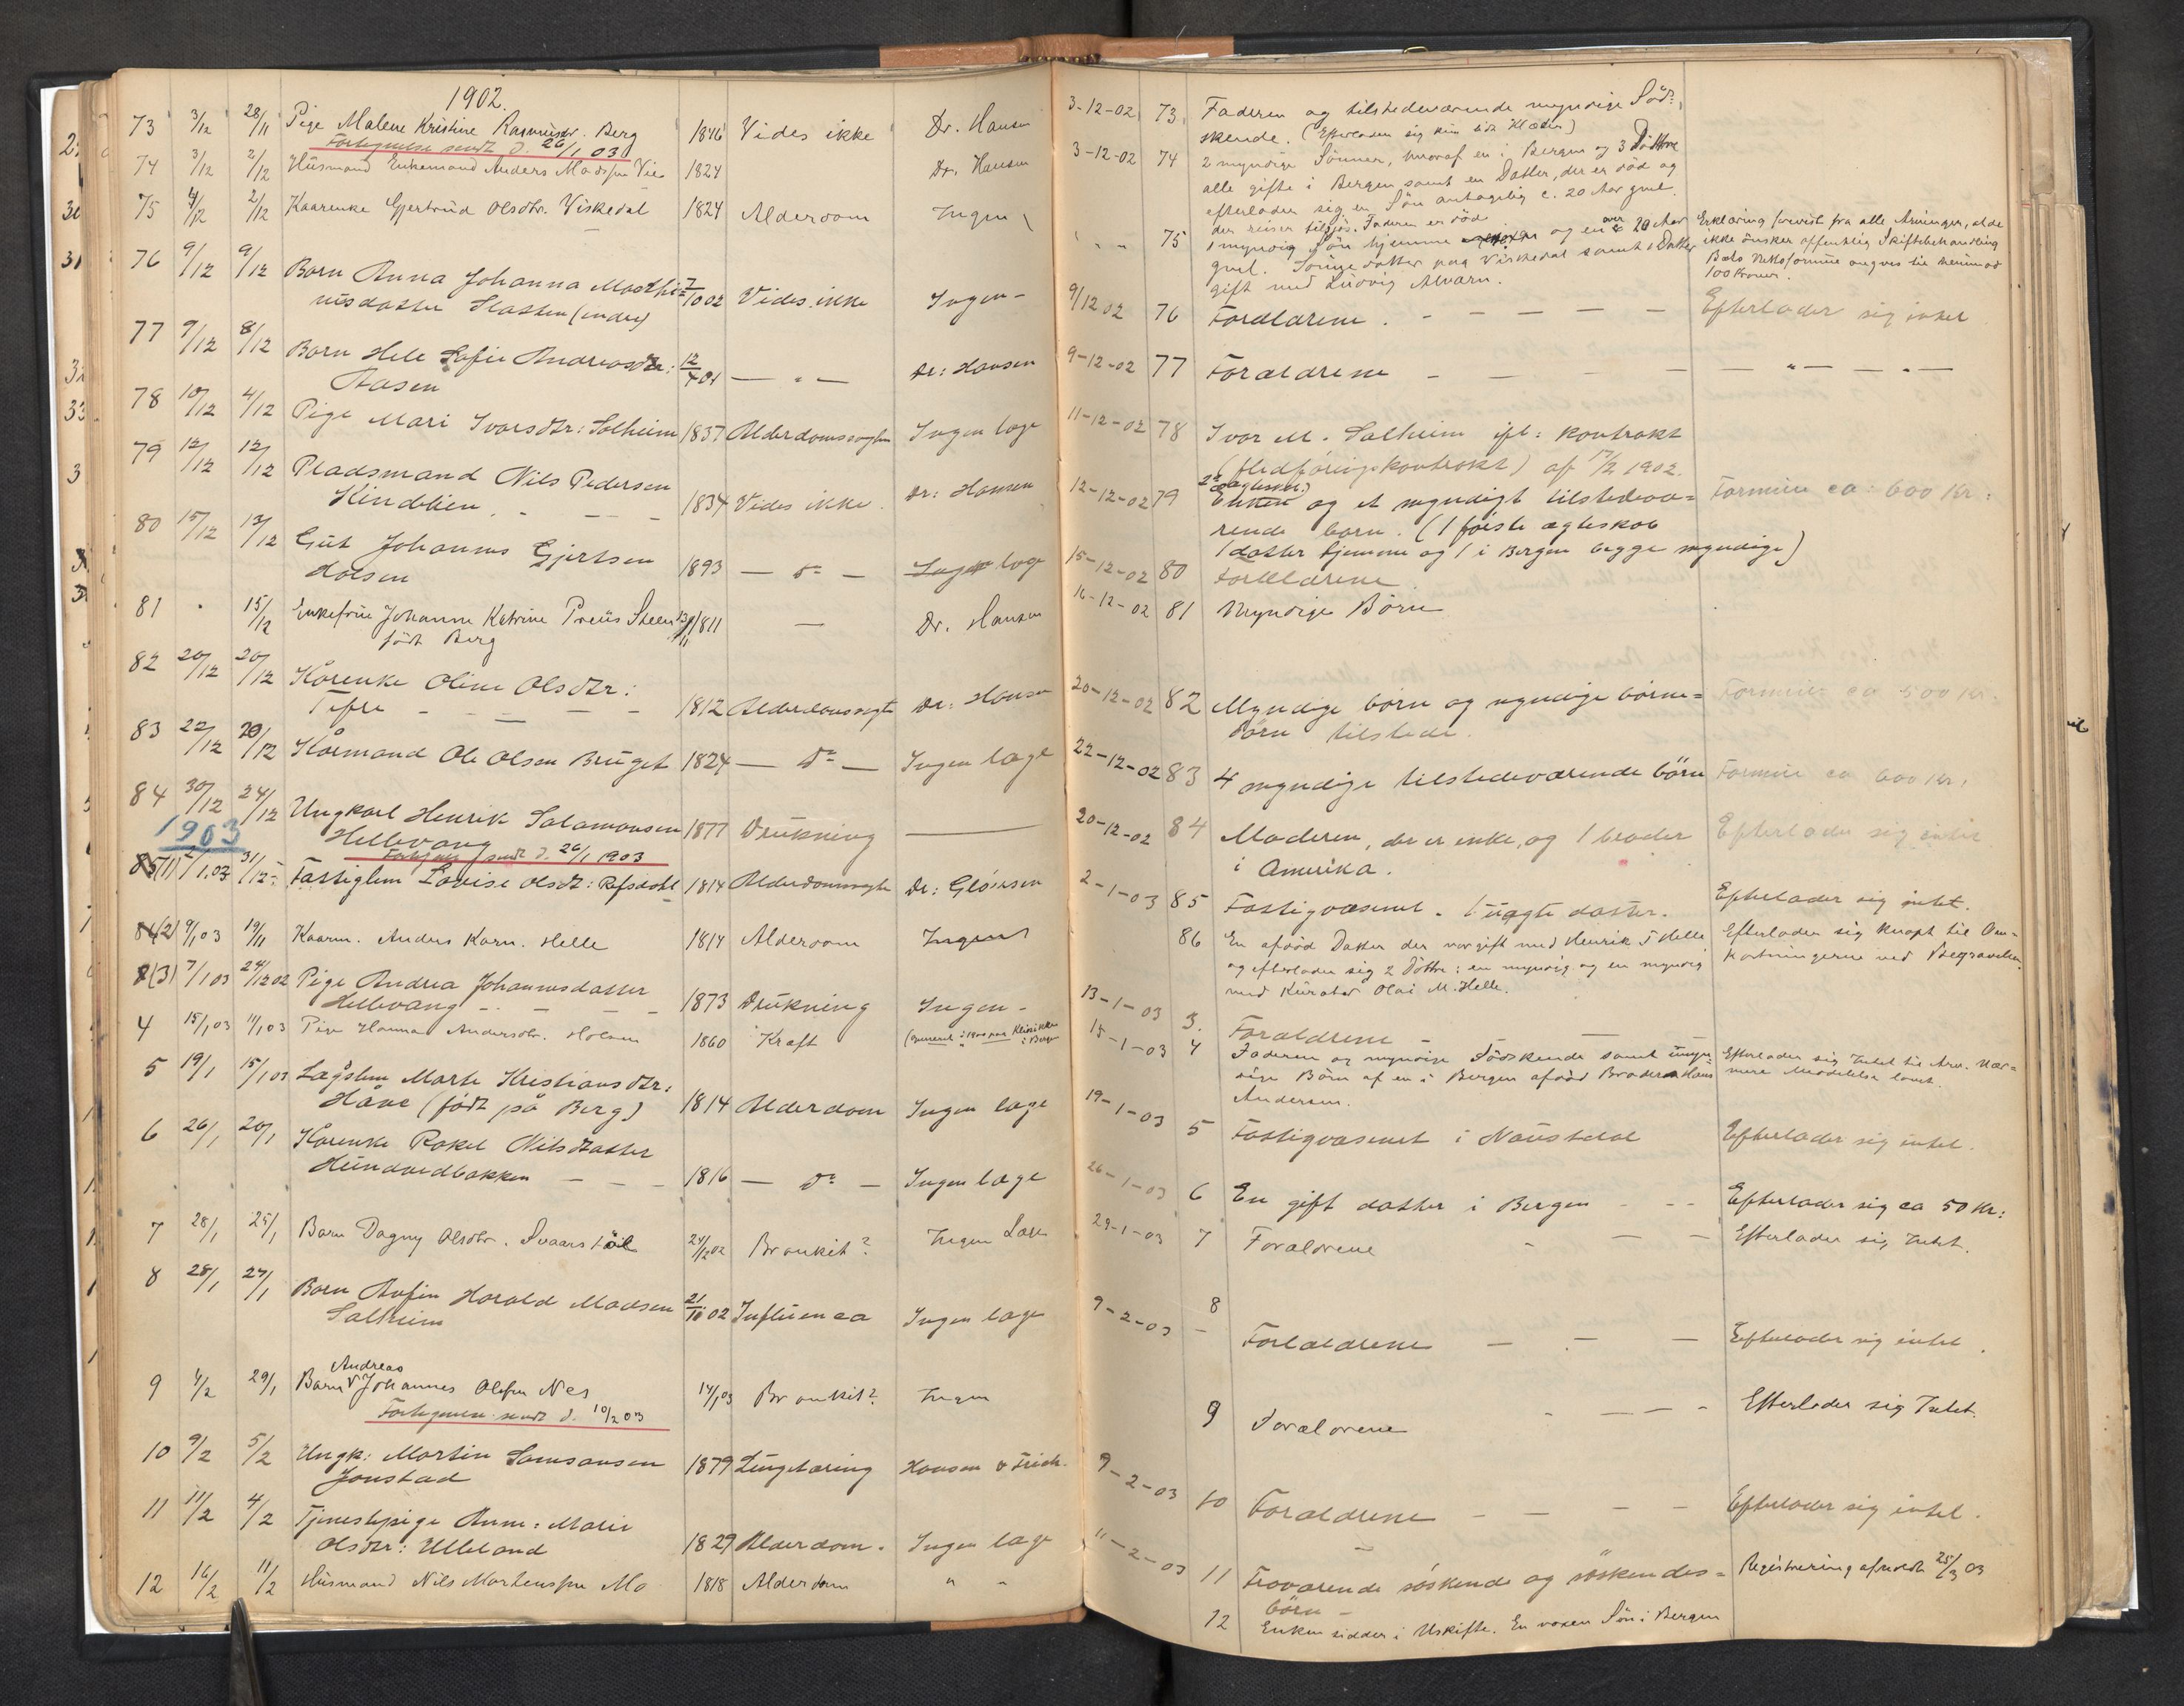 1902.
73 3/12 28/11 Pige Malene Kristine Rasmusdr. Berg 1846 Vides ikke Dr. Hansen
Fortegnelse sendt d. 26/1 03
74 3/12 2/12 Husmand Enkemand Anders Madssen Vie 1824 Dr. Hansen
75 4/12 2/12 Kaarenke Gjertrud Olsdtr. Viskedal 1824 Alderdom Ingen
76 9/12 9/12 Barn Anna Johanna Mathi= 7/10 02 Vides ikke Ingen -
nusdatter Slatten (indre)
77 9/12 8/12 Barn Hele Sofie Andreasdtr: 12/4 01 — " —
Aasen Dr: Hansen
78 10/12 4/12 Pige Mari Ivarsdtr: Solheim 1837 Alderdomssvaghed Ingen læge
79 12/12 12/12 Pladsmand Nils Pedersen
Hindelien 1834 Vides ikke. Dr: Hansen
80 15/12 13/12 Gut Johannes Gjertsen
Holsen 1893 — do — Ingen læge
81 " 15/12 Enkefrue Johanne Katrine Preus Steen 1811 — Dr. Hansen
født Berg
82 20/12 20/12 Kårenke Oline Olsdtr:
Tefre 1812 Alderdomssvaghed Dr: Hansen
83 22/12 20/12 Kårmand Ole Olsen Bruget 1824 — do — Ingen læge
84 30/12 24/12 Ungkarl Henrik Salamonsen 1877 Drukning —
Hellevang
Fortegnelse sendt d. 26/1 1903
1903
85 (1) 2/1 03 31/12 Fattiglem Lovise Olsdt: Refsdal 1814 Alderdomssvaghed Dr: Gløersen
86 (2) 9/1 03 19/11 Kaarm. Anders Karn. Helle 1814 Alderdom Ingen
8(3) 7/1 03 24/12 02 Pige Andrea Johannesdatter
Hellevang 1873 Drukning Ingen -
4 15/1 03 11/1 03 Pige Hanna Andersdtr. Holsen 1860 Kræft (opereret i 1900 paa Klinikken i Bergen
5 19/1 15/1 03 Lægslem Marte Kristiansdtr:
Håve (født på Berg) 1814 Alderdom Ingen læge
6 26/1 20/1 Kårenke Rakel Nilsdatter
Hundvedbakken 1816 — do — Ingen læge
7 28/1 25/1 Barn Dagny Olsdtr. Svaarstøl 24/12 02 Bronkit? Ingen Læge
8 28/1 27/1 Barn Anfin Harald Madsen 21/10 02 Influenca Ingen læge
Solheim
Andreas
9 4/2 29/1 Barn Johannes Olsen Nes 14/1 03 Bronkit? Ingen
Fortegnelse sendt d. 10/2 03
10 9/2 5/2 Ungk: Martin Samsonsen 1879 Lungetæring Hansen & Frich.
Jonstad
11 11/2 4/2 Tjenestepige Anne: Marie
Olsdtr: Ulleland 1829 Alderdom. Ingen læge
12 16/2 11/2 Husmand Nils Mortenssen Mo 1818 Alderdom " "
3-12-02 73 Faderen og tilstedeværende myndige Sød-
skende. (Efterlader sig kun lidt Klæder)
3-12-02 74 2 myndige Sønner, hvoraf en i Bergen og 3 Døttre
alle gifte i Bergen samt en Datter, der er død og
efterlader sig en Søn antagelig c. 20 Aar gml.
der reiser tilsjøs. Faderen er død
" " " 75 1 myndig Søn hjemme og en over 20 Aar Erklæring forevist fra alle Arvinger, at de
gml. Sønnedatter paa Viskedal samt 1 Datter ikke ønsker offentlig Skiftebehandling
gift med Ludvig Alværn. Boets Netto formue angives til henimod
100 Kroner.
9/12 02 76 Forældrene. - - - - - Efterlader sig intet
9-12-02 77 Forældrene - - - — " — " —
11-12-02 78 Ivar M. Solheim ifl: kontrakt
(fledføringskontrakt) af 17/2 1902.
12-12-02 79 Enken og et myndigt tilstedevæ= Formue ca: 600 Kr:
rende barn. (1 første ægteskab
1 datter hjemme og 1 i Bergen begge myndige)
15-12-02 80 Forældrene
16-12-02 81 Myndige Børn
20-12-02 82 Myndige børn og myndige børne= Formue ca 500 Kr.
børn tilstede.
22-12-02 83 4 myndige tilstedeværende børn Formue ca 600 Kr.
20-12-02 84 Moderen, der er enke, og 1 broder Efterlader sig intet
i Amerika.
2-1-03 85 Fattigvæsenet. 1 uægte datter. Efterlader sig intet.
86 En afdød Datter der var gift med Henrik J Helle Efterlader sig knapt til Om-
og efterlader sig 2 Døttre: en myndig og en myndig kostningerne ved Begravelsen.
med Kurator Olai M. Helle.
13-1-03 3. Forældrene - —
15-1-03 4 Faderen og myndige Sødskende samt umyn- Efterlader sig Intet til Arv. Nær-
dige Børn af en i Bergen afdød Broder Hans mere Meddelelse lovet.
Andersen.
19-1-03 5 Fattigvæsenet i Naustdal Efterlader sig intet.
26-1-03 6 En gift datter i Bergen - - - Efterlader sig ca 50 Kr:
29-1-03 7 Forældrene - — — Efterlader sig Intet.
9-2-03 8 Forældrene — - — Efterlader sig intet.
9 Forældrene - — - - Efterlader sig Intet.
9-2-03 10 Forældrene - — - - Efterlader sig intet.
11-2-03 11 Fraværende søskende og søskendes= Registrering afholdt 25/3 03
børn -
12 Enken sidder i Uskifte. En voxen Søn i Bergen